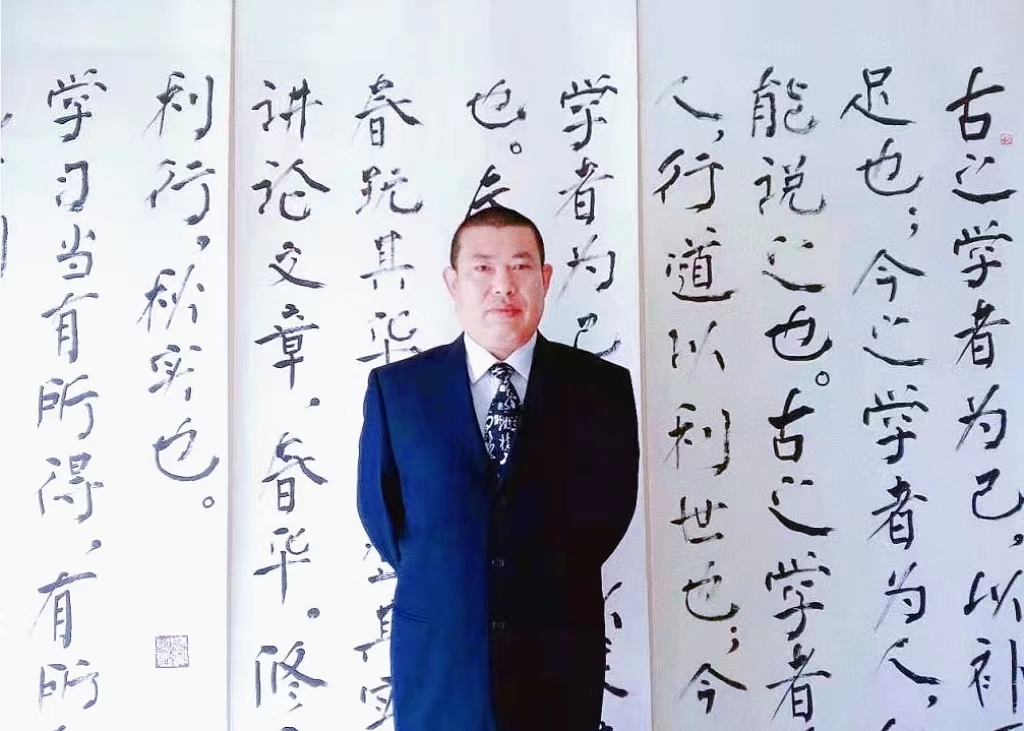 古之学者为己，以补
足也；今之学者为人，
能说之也。古之学者
人，行道以利世也；今
学者为己
也。夫
春玩其华其实
讲论文章，春华。修
利行，秋实也。
学习当有所得，有所